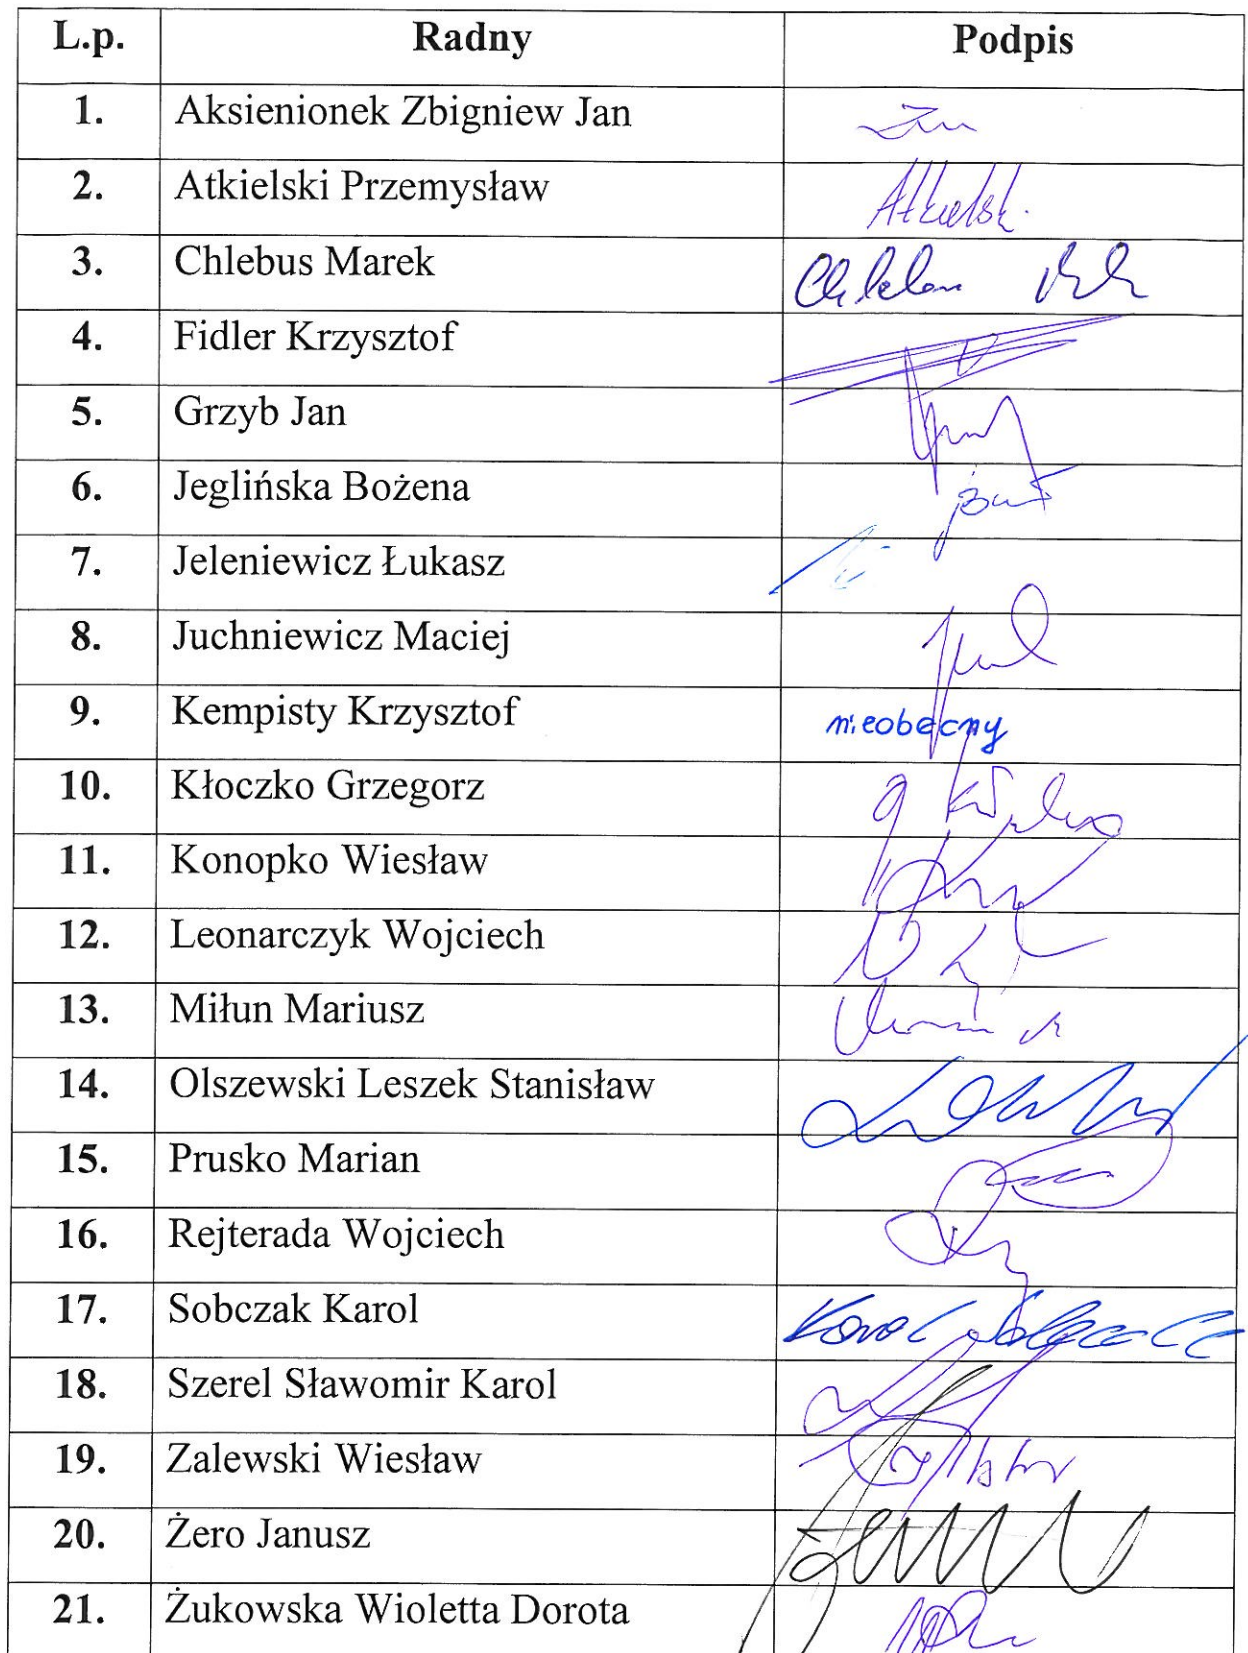 L.p. Radny Podpis
1. Aksienionek Zbigniew Jan
2. Atkielski Przemysław Atkielski
3. Chlebus Marek
4. Fidler Krzysztof
5. Grzyb Jan
6. Jeglińska Bożena
7. Jeleniewicz Łukasz
8. Juchniewicz Maciej
9. Kempisty Krzysztof nieobecny
10. Kłoczko Grzegorz
11. Konopko Wiesław
12. Leonarczyk Wojciech
13. Miłun Mariusz
14. Olszewski Leszek Stanisław
15. Prusko Marian
16. Rejterada Wojciech
17. Sobczak Karol Karol Sobczak
18. Szerel Sławomir Karol
19. Zalewski Wiesław
20. Żero Janusz
21. Żukowska Wioletta Dorota